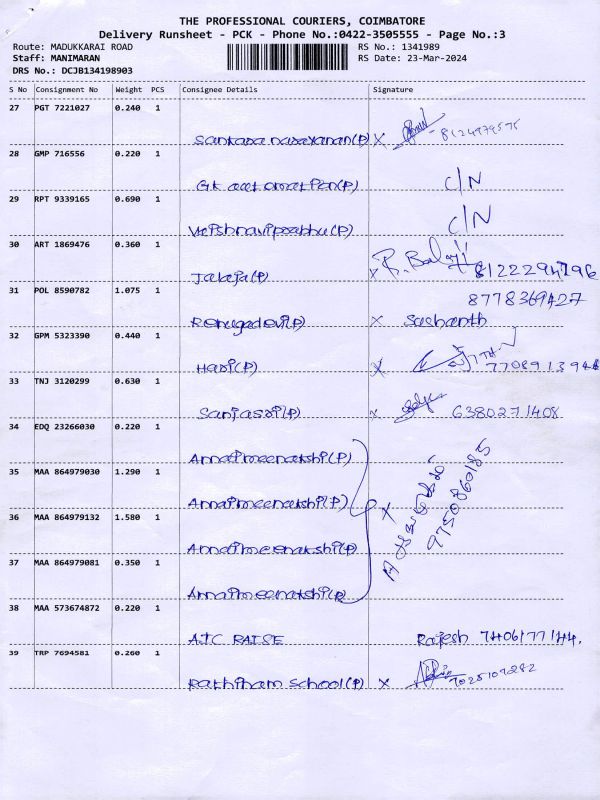 THE PROFESSIONAL COURIERS, COIMBATORE
Delivery Runsheet - PCK - Phone No.:0422-3505555 - Page No.:3
Route: MADUKKARAI ROAD RS No.: 1341989
Staff: MANIMARAN RS Date: 23-Mar-2024
DRS No.: DCJB134198903
S No Consignment No Weight PCS Consignee Details Signature
27 PGT 7221027 0.240 1
Sankara narayanan(P) X 8124979575
28 GMP 716556 0.220 1
C/N
29 RPT 9339165 0.690 1
Vaishnaviprabhu(P) C/N
30 ART 1869476 0.360 1
Jalaja(P) X R. Balaji 8122294796
31 POL 8590782 1.075 1
8778369427
Renugadevi(P) X Sashanth
32 GPM 5323390 0.440 1
Hari(P) X
33 TNJ 3120299 0.630 1
Sanjassri(P) X 6380271408
34 EDQ 23266030 0.220 1
Annaimeenakshi(P)
35 MAA 864979030 1.290 1
Annaimeenakshi(P) X 9750860185
36 MAA 864979132 1.580 1
Annaimeenakshi(P)
37 MAA 864979081 0.350 1
Annaimeenakshi(P)
38 MAA 573674872 0.220 1
AJC RAISE Rajesh 7406177144.
39 TRP 7694581 0.260 1
Rathinam School(P) X 9025109282